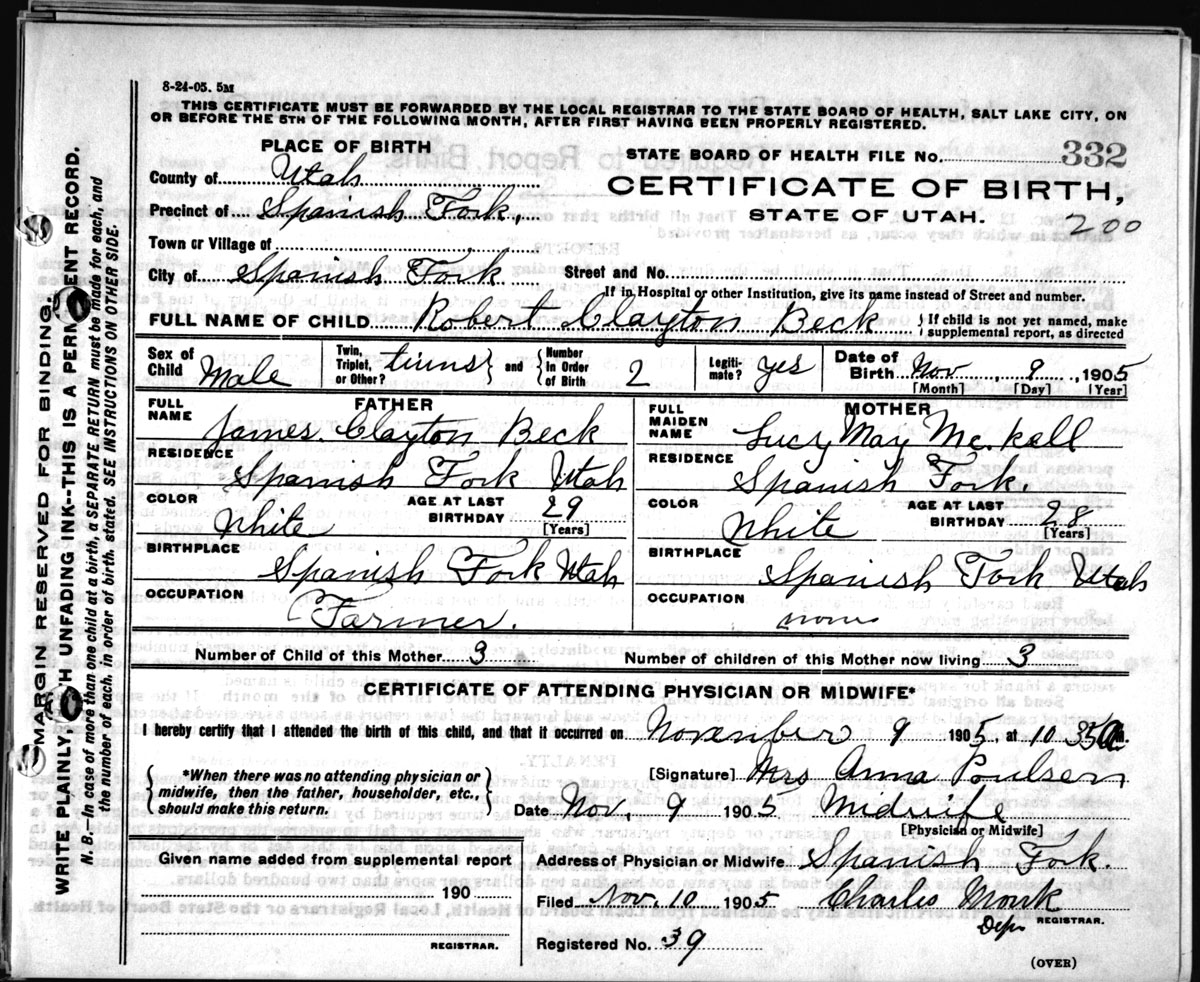 8-24-05. 5M
THIS CERTIFICATE MUST BE FORWARDED BY THE LOCAL REGISTRAR TO THE STATE BOARD OF HEALTH, SALT LAKE CITY, ON
OR BEFORE THE 5TH OF THE FOLLOWING MONTH, AFTER FIRST HAVING BEEN PROPERLY REGISTERED.
PLACE OF BIRTH
STATE BOARD OF HEALTH FILE No. 332
County of Utah
CERTIFICATE OF BIRTH,
Precinct of Spanish Fork,
STATE OF UTAH. 200
Town or Village of
City of Spanish Fork Street and No.
If in Hospital or other Institution, give its name instead of Street and number.
FULL NAME OF CHILD Robert Clayton Beck } If child is not yet named, make supplemental report, as directed
Sex of Child Male Twin, Triplet, or Other? twins and { Number In Order of Birth 2 Legitimate? yes Date of Birth Nov 9, 1905
[Month] [Day] [Year]
FATHER MOTHER
FULL NAME James Clayton Beck FULL MAIDEN NAME Lucy May McKell
RESIDENCE Spanish Fork Utah RESIDENCE Spanish Fork.
COLOR White AGE AT LAST BIRTHDAY 29 [Years] COLOR White AGE AT LAST BIRTHDAY 28 [Years]
BIRTHPLACE Spanish Fork Utah BIRTHPLACE Spanish Fork Utah
OCCUPATION Farmer. OCCUPATION
Number of Child of this Mother 3 Number of children of this Mother now living 3
CERTIFICATE OF ATTENDING PHYSICIAN OR MIDWIFE*
I hereby certify that I attended the birth of this child, and that it occurred on November 9 1905, at 10 35 a m.
{ *When there was no attending physician or midwife, then the father, householder, etc., should make this return. }
[Signature] Mrs Anna Poulsen
Date Nov. 9 1905 Midwife
[Physician or Midwife]
Given name added from supplemental report
Address of Physician or Midwife Spanish Fork.
190
Filed Nov. 10 1905 Charles Monk
Depu REGISTRAR.
REGISTRAR.
Registered No. 39
(OVER)
MARGIN RESERVED FOR BINDING.
WRITE PLAINLY WITH UNFADING INK--THIS IS A PERMANENT RECORD.
N. B.—In case of more than one child at a birth, a SEPARATE RETURN must be made for each, and
the number of each, in order of birth, stated. SEE INSTRUCTIONS ON OTHER SIDE.